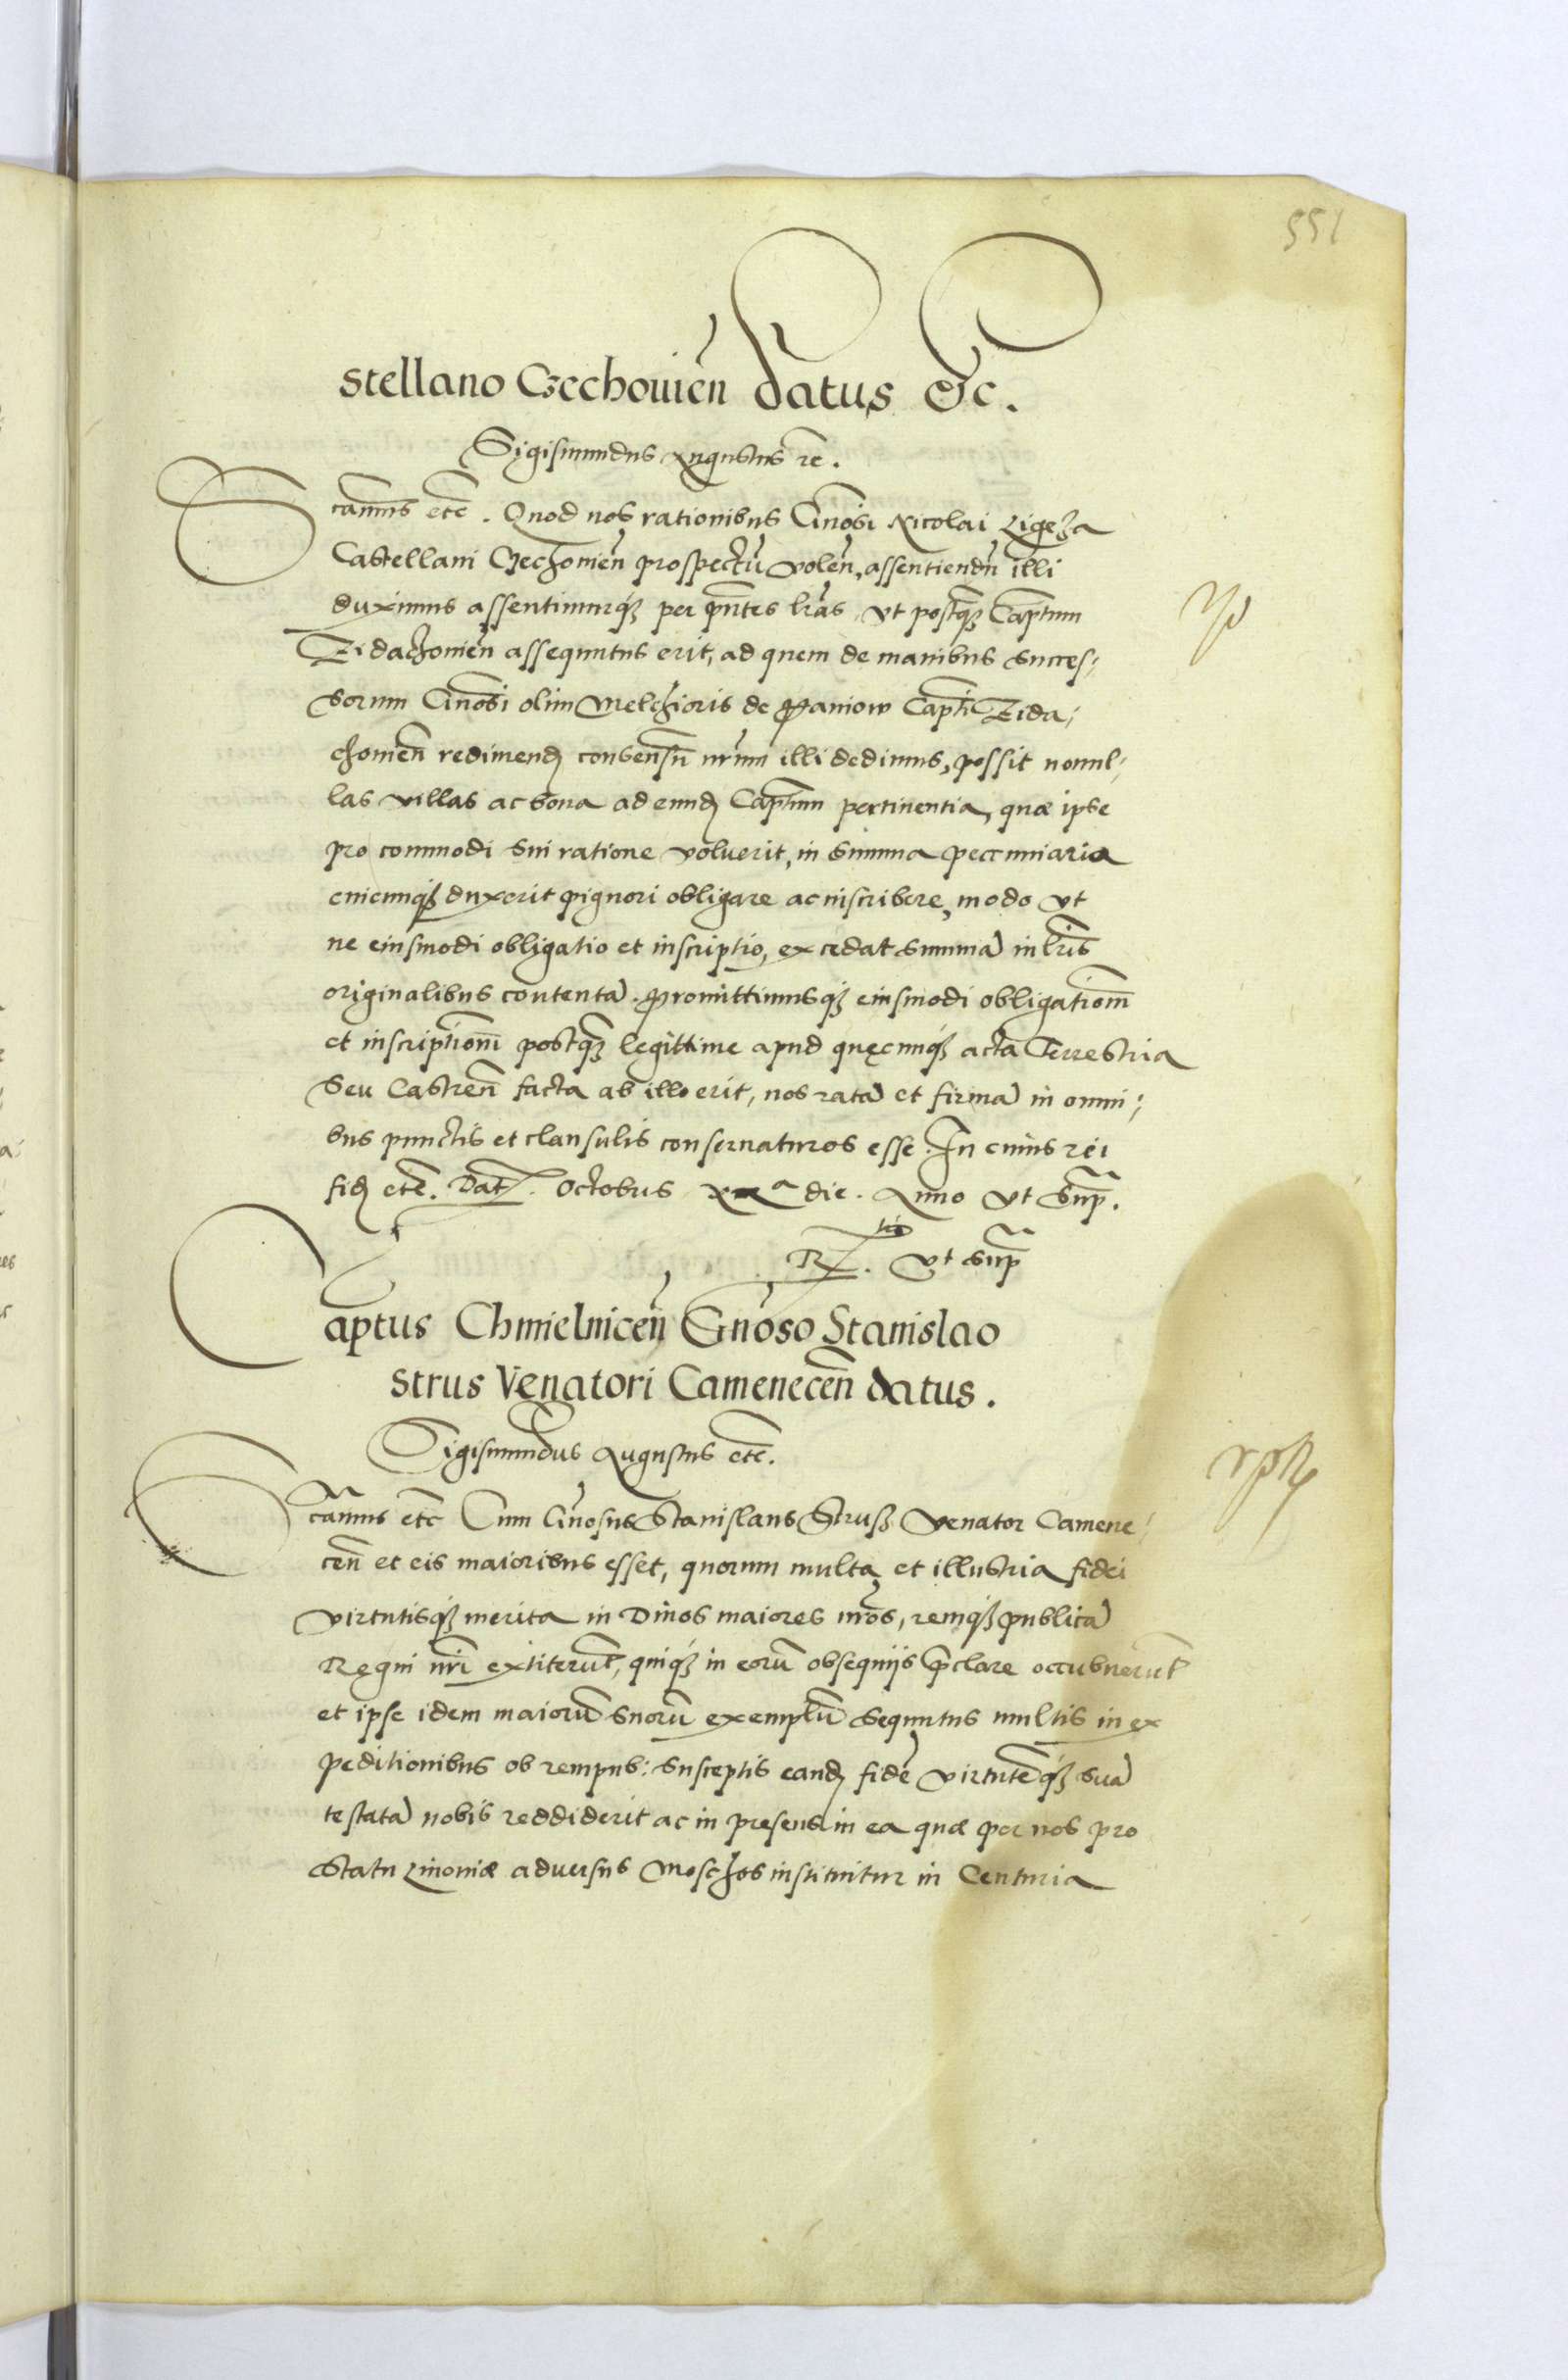 551
stellano Czechouien̄ datus etc.
Sigismundus Augustus rc̄.
Scamus etc̄. Quod nos rationibus Gn̄osi Nicolai Ligęza
Castellani Czechouien̄ prospectū volen̄, assentiendū illi
duximus assentimurq̃ per pn̄tes lr̄as, vt postq̃ Cap̄tum
Zidachouien̄ assequutus erit, ad quem de manibus succes,
sorum Gn̄osi olim Melchioris de Paniow Cap̄ti Zida,
chouien̄ redimend̄ consensū nr̄um illi dedimus, possit nonul,
las villas ac bona ad eund̄ Cap̄tum pertinentia, quæ ipse
pro commodi sui ratione voluerit, in summa peccuniaria
cuicunq̃ duxerit pignori obligare ac inscribere, modo vt
ne eiusmodi obligatio et inscriptio, excedat summā in lr̄is
originalibus contentā. Promittimusq̃ eiusmodi obligatiōm
et inscriptiōm postq̃ legittime apud quęcunq̃ acta Terrestria
seu Castren̄ facta ab illo erit, nos ratā et firmā in omni,
bus punctis et clausulis conseruaturos esse. In cuius rei
fid̄ etc̄. Dat̄. Octobris die. Anno vt sup̄.
Rtio. Vt sup̄
Captus Chmielnicen̄ Gn̄oso Stanislao
Strus Venatori Camenecen̄ datus.
Sigismundus Augustus etc̄.
Scamus etc̄ Cum Gn̄osus Stanislaus Strusz Venator Camene,
cen̄ et eis maioribus esset, quorum multa et illustria fidei
virtutisq̃ merita in Diuos maiores nr̄os, remq̃ publicā
Regni nr̄i extiterūt, quiq̃ in eorū obsequijs p̄clare occubuerūt
et ipse idem maiorū suorū exemplū sequutus multis in ex
peditionibus ob rempub: susceptis eand̄ fidē virtutēq̃ suā
testatā nobis reddiderit ac in presens in ea quæ per nos pro
Statu Liuoniæ aduersus Moschos instituitur in Centuria